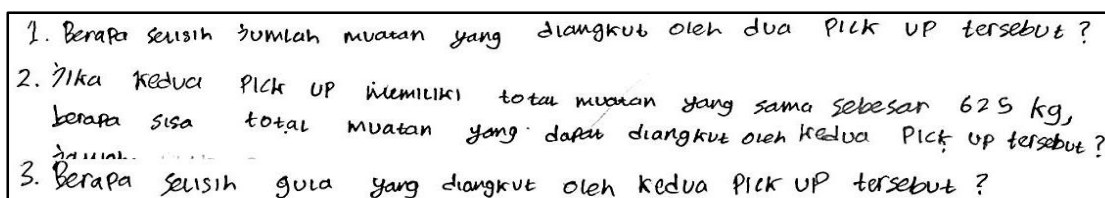 1. Berapa selisih jumlah muatan yang diangkut oleh dua Pick up tersebut?
2. Jika kedua Pick up memiliki total muatan yang sama sebesar 625 kg,
berapa sisa total muatan yang dapat diangkut oleh kedua Pick up tersebut?
3. Berapa selisih gula yang diangkut oleh kedua Pick up tersebut?